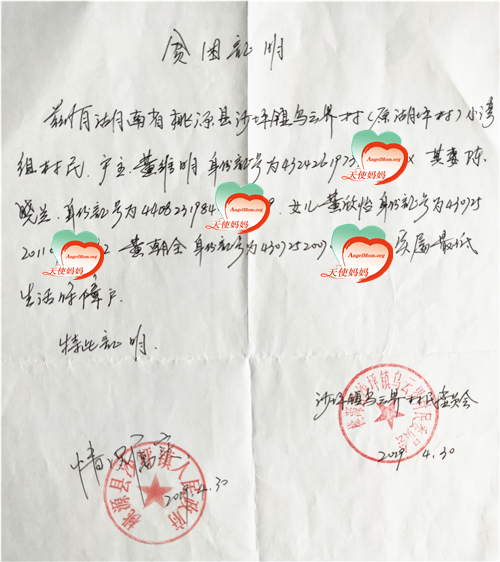 贫困证明
兹有湖南省桃源县沙坪镇乌云界村(原湖坪村)小湾
组村民户主董维明身份证号为432426197 AngelMom.org 天使妈妈 X 其妻陈
晓兰.身份证号为4408231984 AngelMom.org 天使妈妈 8.女儿董欣怡身份证号为430725
2011 AngelMom.org 天使妈妈 2 董朝全身份证号为430725200 AngelMom.org 天使妈妈 实属最低
生活保障户.
特此证明.
沙坪镇乌云界村民委员会
2019.4.30
情况属实.
2019.4.30
桃源县沙坪镇人民政府